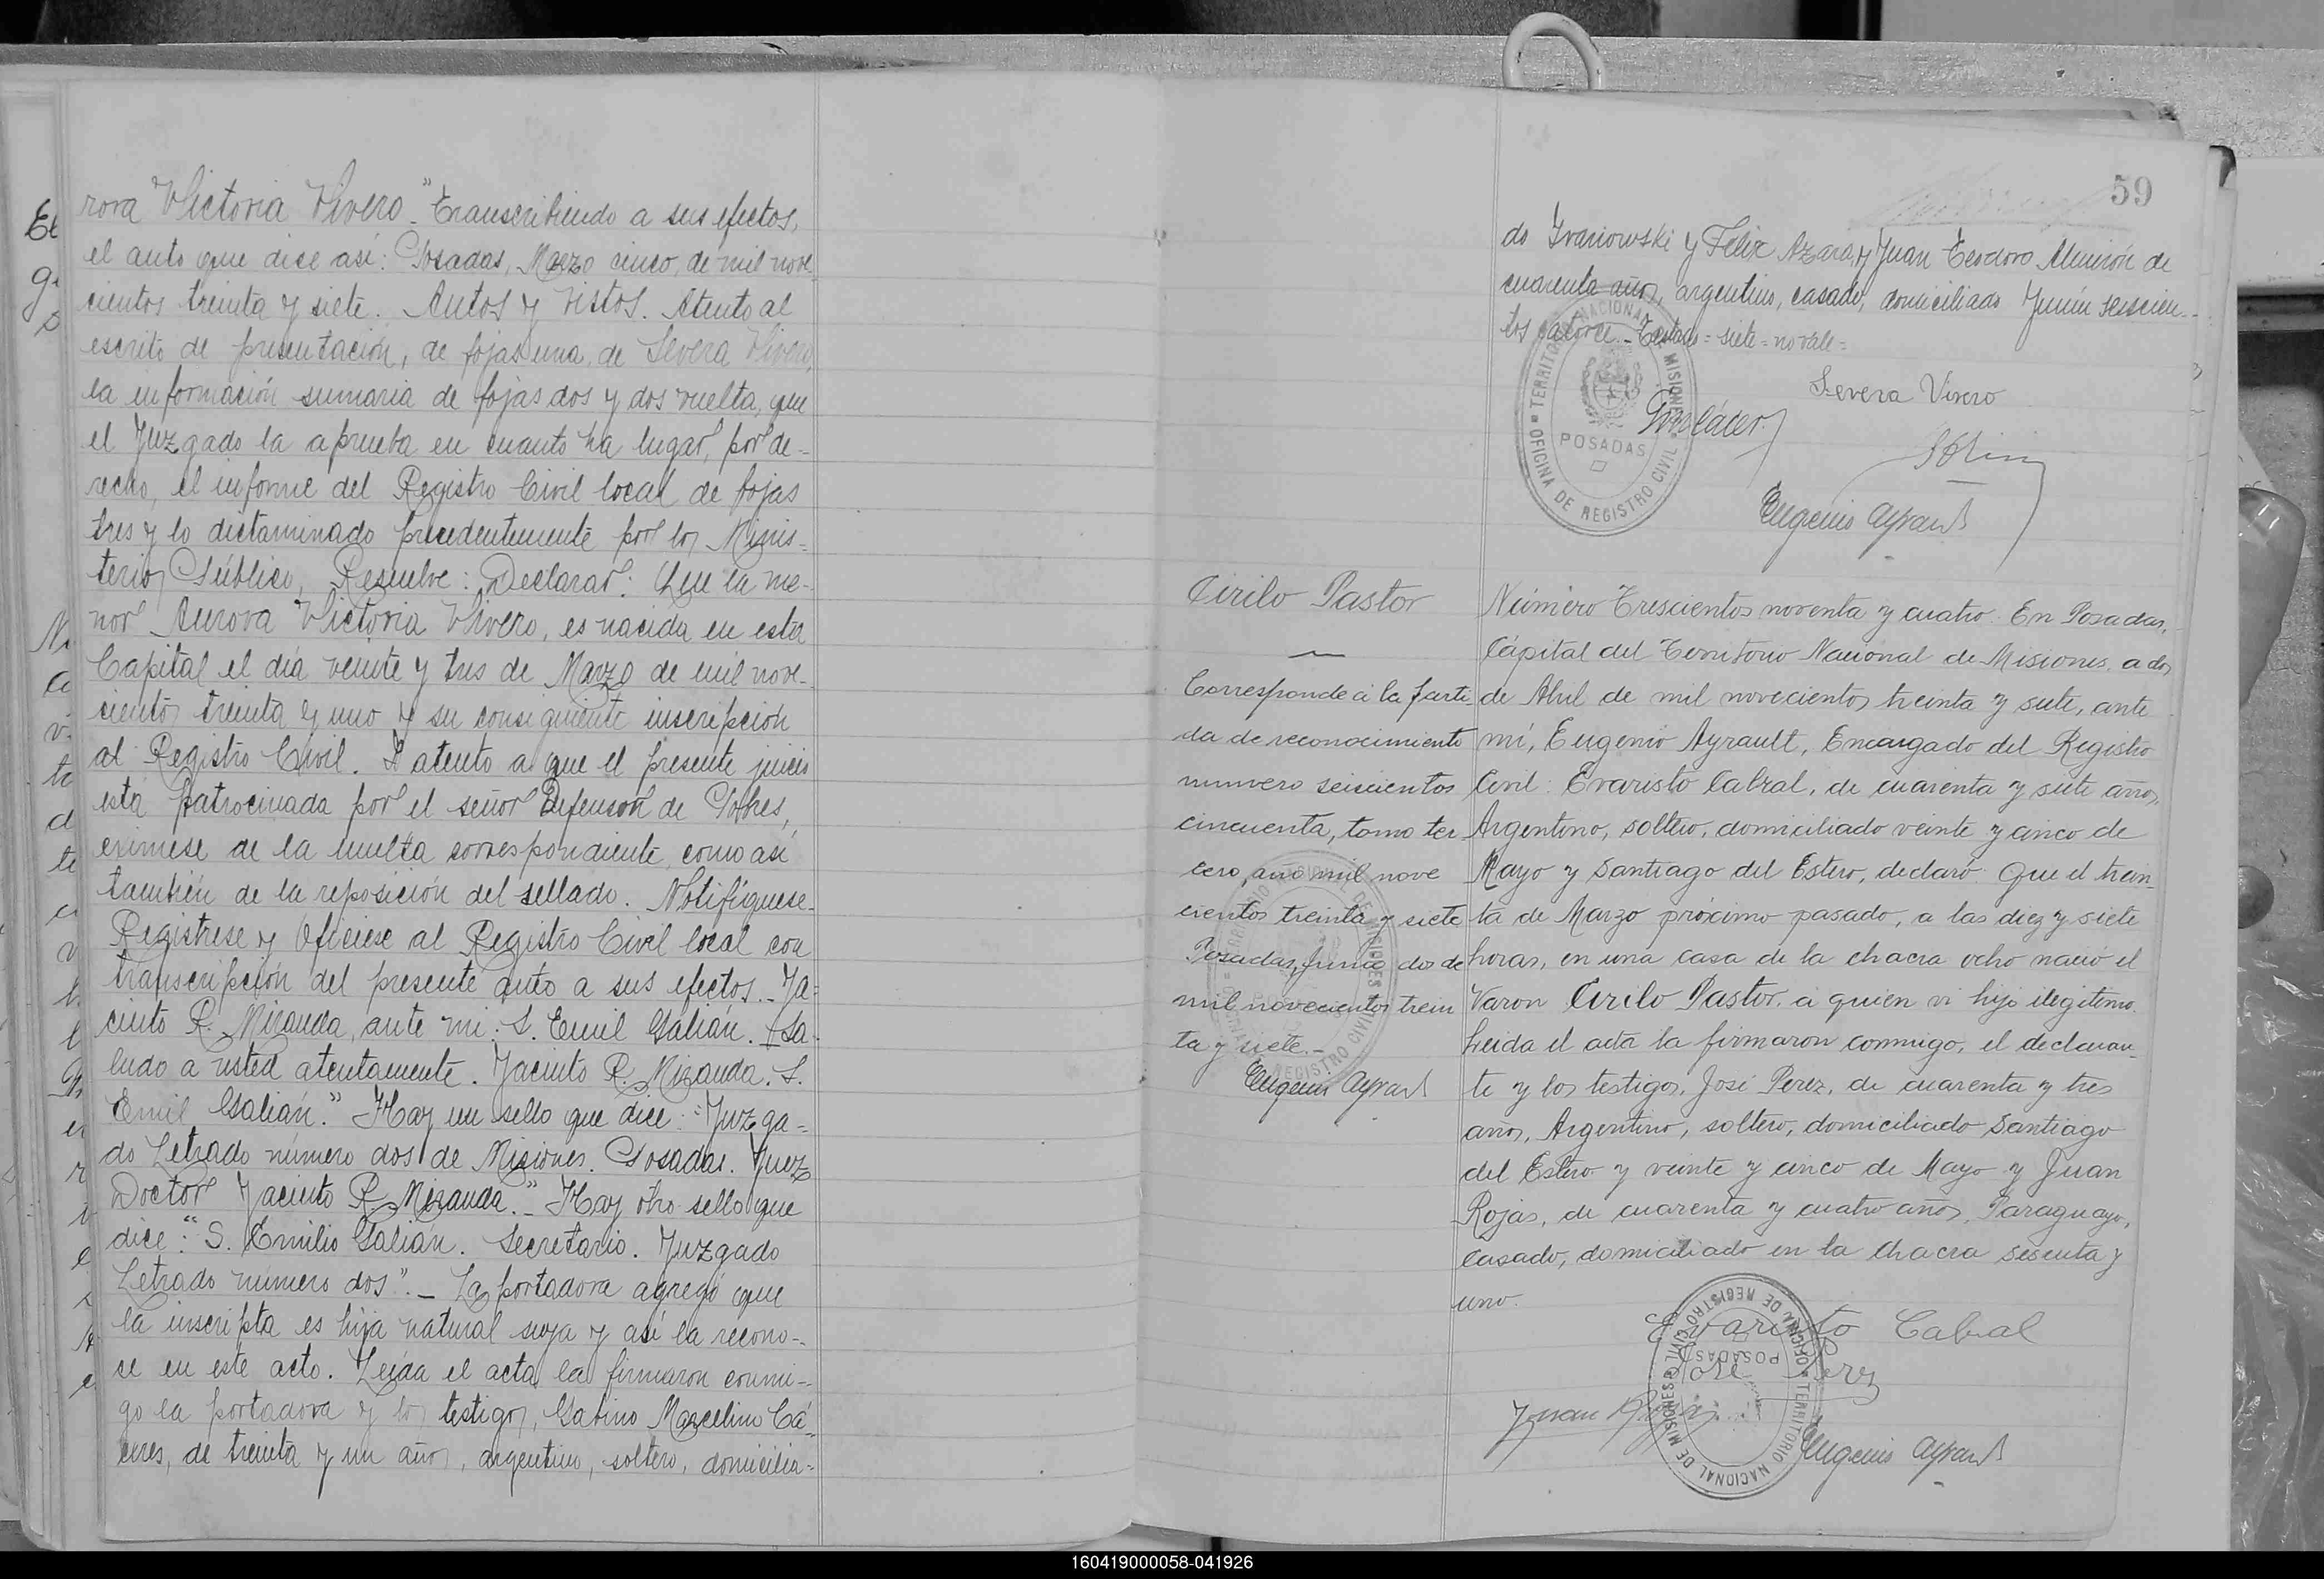 rora Victoria Vivero".- Transcribiendo a sus efectos,
el auto que dice asi: Posadas, Marzo cinco, de mil nove-
cientos treinta y siete. Autos y Vistos. Atento al
escrito de presentación, de fojas una, de Severa Vivero,
la información sumaria de fojas dos y dos vuelta, que
el Juzgado la aprueba en cuanto ha lugar, por de-
recho, el informe del Registro Civil local de fojas
tres y lo dictaminado precedentemente por los Minis-
terios Público, Resuelve: Declarar: Que la me-
nor Aurora Victoria Vivero, es nacida en esta
Capital el día veinte y tres de Marzo de mil nove-
cientos treinta y uno y su consiguiente inscripción
al Registro Civil. Y atento a que el presente juicio
está patrocinada por el señor Defensor de Pobres,
exímese de la multa correspondiente, como asi
también de la reposición del sellado. Notifíquese.
Regístrese y Ofíciese al Registro Civil local con
transcripción del presente auto a sus efectos.- Ja-
cinto R. Miranda, ante mi: S. Emil Galián. Sa-
ludo a usted atentamente. Jacinto R. Miranda. S.
Emil Galián." Hay un sello que dice: "Juzga-
do Letrado número dos de Misiones. Posadas. Juez
Doctor Jacinto R. Miranda."- Hay otro sello que
dice: "S. Emilio Galian. Secretario. Juzgado
Letrado número dos".- La portadora agregó que
la inscripta es hija natural suya y así la recono-
ce en este acto. Leída el acta la firmaron conmi-
go la portadora y los testigos, Gabino Marcelino Cá-
ceres, de treinta y un años, argentino, soltero, domicilia-
59
do Ivanowski y Felix Azara, y Juan Teodoro Almirón de
cuarenta años, argentino, casado, domiciliado Junín seiscien-
tos catorce.- Testado = siete = no vale =
Severa Vivero
Eugenio Ayrault
TERRITORIO NACIONAL DE MISIONES
POSADAS
OFICINA DE REGISTRO CIVIL
Cirilo Pastor
Corresponde a la parti
da de reconocimiento
numero seiscientos
cincuenta, tomo ter
cero, año mil nove
cientos treinta y siete
Posadas, junio dos de
mil novecientos trein
ta y siete.-
Eugenio Ayrault
Número Trescientos noventa y cuatro. En Posadas,
Cápital del Territorio Nacional de Misiones, a dos
de Abril de mil novecientos treinta y siete, ante
mí, Eugenio Ayrault, Encargado del Registro
Civil: Evaristo Cabral, de cuarenta y siete años,
Argentino, soltero, domiciliado veinte y cinco de
Mayo y Santiago del Estero, declaró: Que el trein-
ta de Marzo próximo pasado, a las diez y siete
horas, en una casa de la chacra ocho nació el
Varon Cirilo Pastor, a quien vi hijo ilegitimo.
Leida el acta la firmaron conmigo, el declaran-
te y los testigos, José Perez, de cuarenta y tres
años, Argentino, soltero, domiciliado Santiago
del Estero y veinte y cinco de Mayo y Juan
Rojas, de cuarenta y cuatro años, Paraguayo,
casado, domiciliado en la chacra sesenta y
uno.
Evaristo Cabral
José Perez
Juan Rojas
Eugenio Ayrault
OFICINA DE REGISTRO CIVIL
POSADAS
TERRITORIO NACIONAL DE MISIONES
160419000058-041926